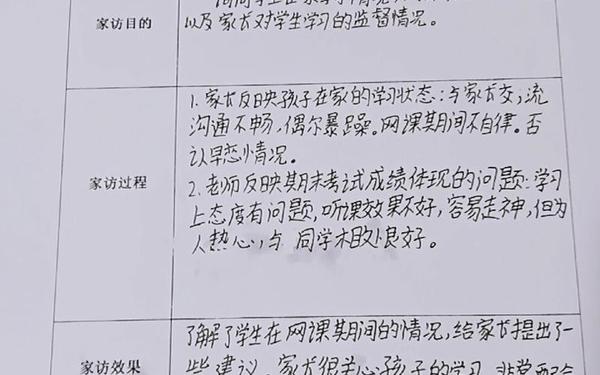 家访目的
以及家长对学生学习的监督情况。
家访过程
1.家长反映孩子在家的学习状态:与家长交流
沟通不畅,偶尔暴躁。网课期间不自律。否
认早恋情况。
2.老师反映期末考试成绩体现的问题:学习
上态度有问题,听课效果不好,容易走神,但为
人热心,与同学相处很好。
家访效果
了解了学生在网课期间的情况,给家长提出了一
些建议。家长很关心孩子的学习,非常配合